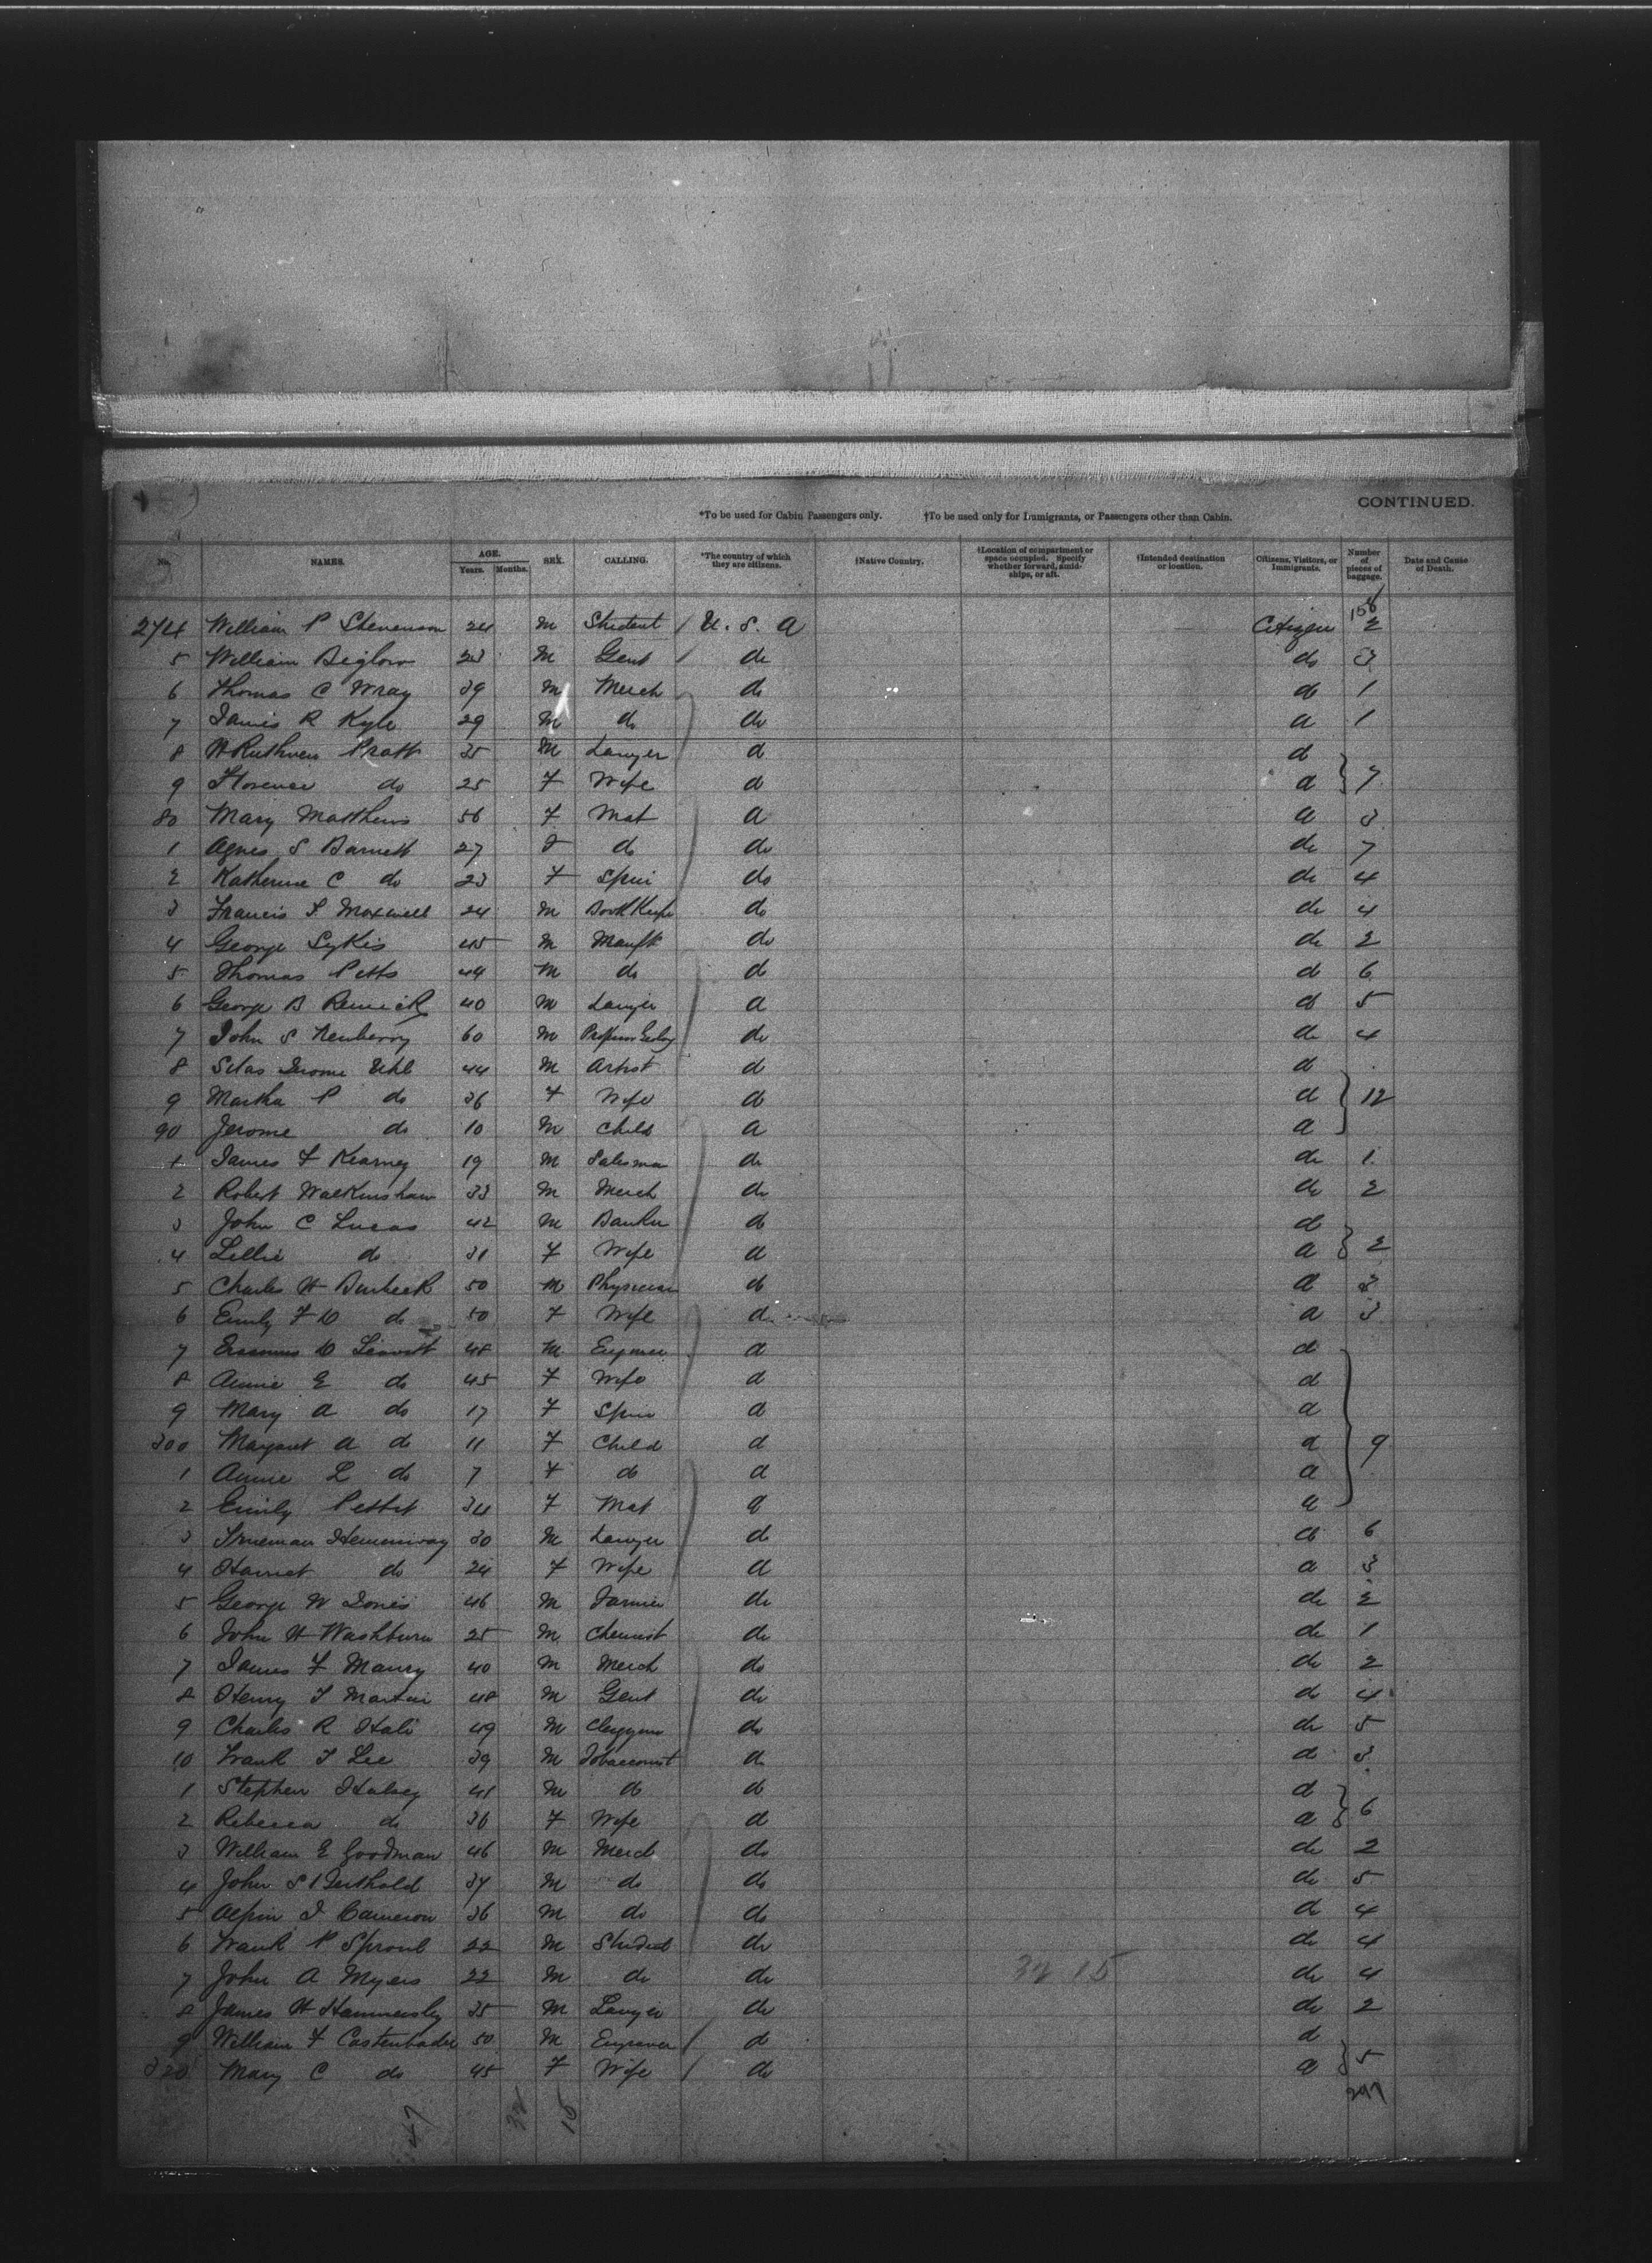 CONTINUED.
*To be used for Cabin Passengers only. †To be used only for Immigrants, or Passengers other than Cabin.
No. NAMES. AGE. Years. Months. SEX. CALLING. *The country of which they are citizens. †Native Country. †Location of compartment or space occupied. Specify whether forward, amidships, or aft. †Intended destination or location. Citizens, Visitors, or Immigrants. Number of pieces of baggage. Date and Cause of Death.
158
274 William P Stevenson 24 M Student U. S. A Citizen 2
5 William Biglow 23 M Gent do do 3
6 Thomas C Wray 39 M Merch do do 1
7 James R Kyle 29 M do do do 1
8 W Ruthven Pratt 35 M Lawyer do do
9 Florence do 25 F Wife do do 7
80 Mary Matthews 56 F Mat do do 3
1 Agnes S Barnett 27 F do do do 7
2 Katherine C do 23 F Spin do do 4
3 Francis F Maxwell 24 M Book Keeper do do 4
4 George Sykes 45 M Manft do do 2
5 Thomas Petts 44 M do do do 6
6 George B Renwick 40 M Lawyer do do 5
7 John S Newberry 60 M Professor Geology do do 4
8 Silas Jerome Uhl 44 M Artist do do
9 Martha P do 36 F Wife do do 12
90 Jerome do 10 M Child do do
1 James F Kearney 19 M Salesman do do 1
2 Robert Walkinshaw 33 M Merch do do 2
3 John C Lucas 42 M Banker do do
4 Lillie do 31 F Wife do do 2
5 Charles H Burbeck 50 M Physician do do 3
6 Emily F D do 50 F Wife do do 3
7 Erasmus D Leavitt 48 M Engineer do do
8 Annie E do 45 F Wife do do
9 Mary A do 17 F Spin do do
300 Margaret A do 11 F Child do do 9
1 Annie L do 7 F do do do
2 Emily Pettit 34 F Mat do do
3 Trueman Hemmiway 30 M Lawyer do do 6
4 Harriet do 24 F Wife do do 3
5 George W Jones 46 M Farmer do do 2
6 John H Washburn 25 M Chemist do do 1
7 James F Maury 40 M Merch do do 2
8 Henry T Martin 48 M Gent do do 4
9 Charles R Hale 49 M Clergyman do do 5
10 Frank T Lee 39 M Tobacconist do do 3
1 Stephen Halsey 41 M do do do
2 Rebecca do 36 F Wife do do 6
3 William E Goodman 46 M Merch do do 2
4 John S Berthold 37 M do do do 5
5 Alpin I Cameron 36 M do do do 4
6 Frank P Sproul 22 M Student do do 4
7 John A Myers 22 M do do 32 15 do 4
8 James H Hammersly 35 M Lawyer do do 2
9 William F Castenbader 50 M Engraver do do
320 Mary C do 45 F Wife do do 5
47 32 15